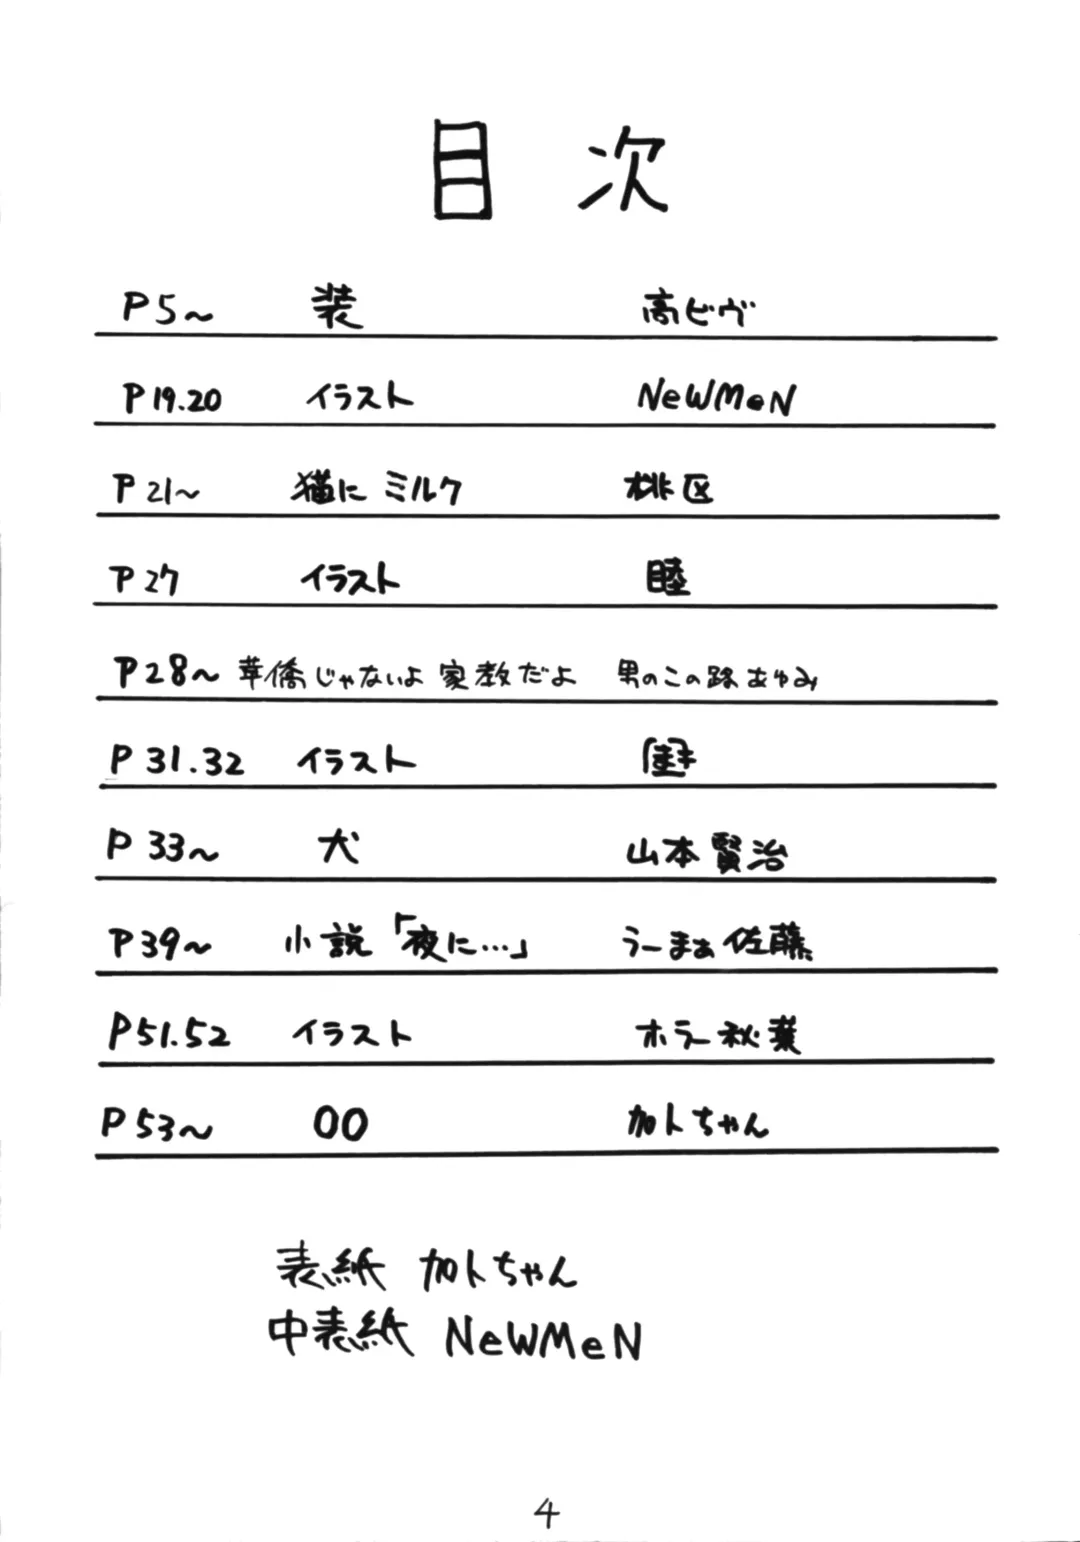 目次
P5～ 装 高ビヴ
P19.20 イラスト NeWMeN
P21～ 猫にミルク 桃区
P27 イラスト 睦
P28～ 華僑じゃないよ家教だよ 男のこの路あゆみ
P31.32 イラスト
P33～ 犬 山本賢治
P39～ 小説「夜に…」 うーまぁ佐藤
P51.52 イラスト ホラー秋葉
P53～ 00 加トちゃん
表紙 加トちゃん
中表紙 NeWMeN
4